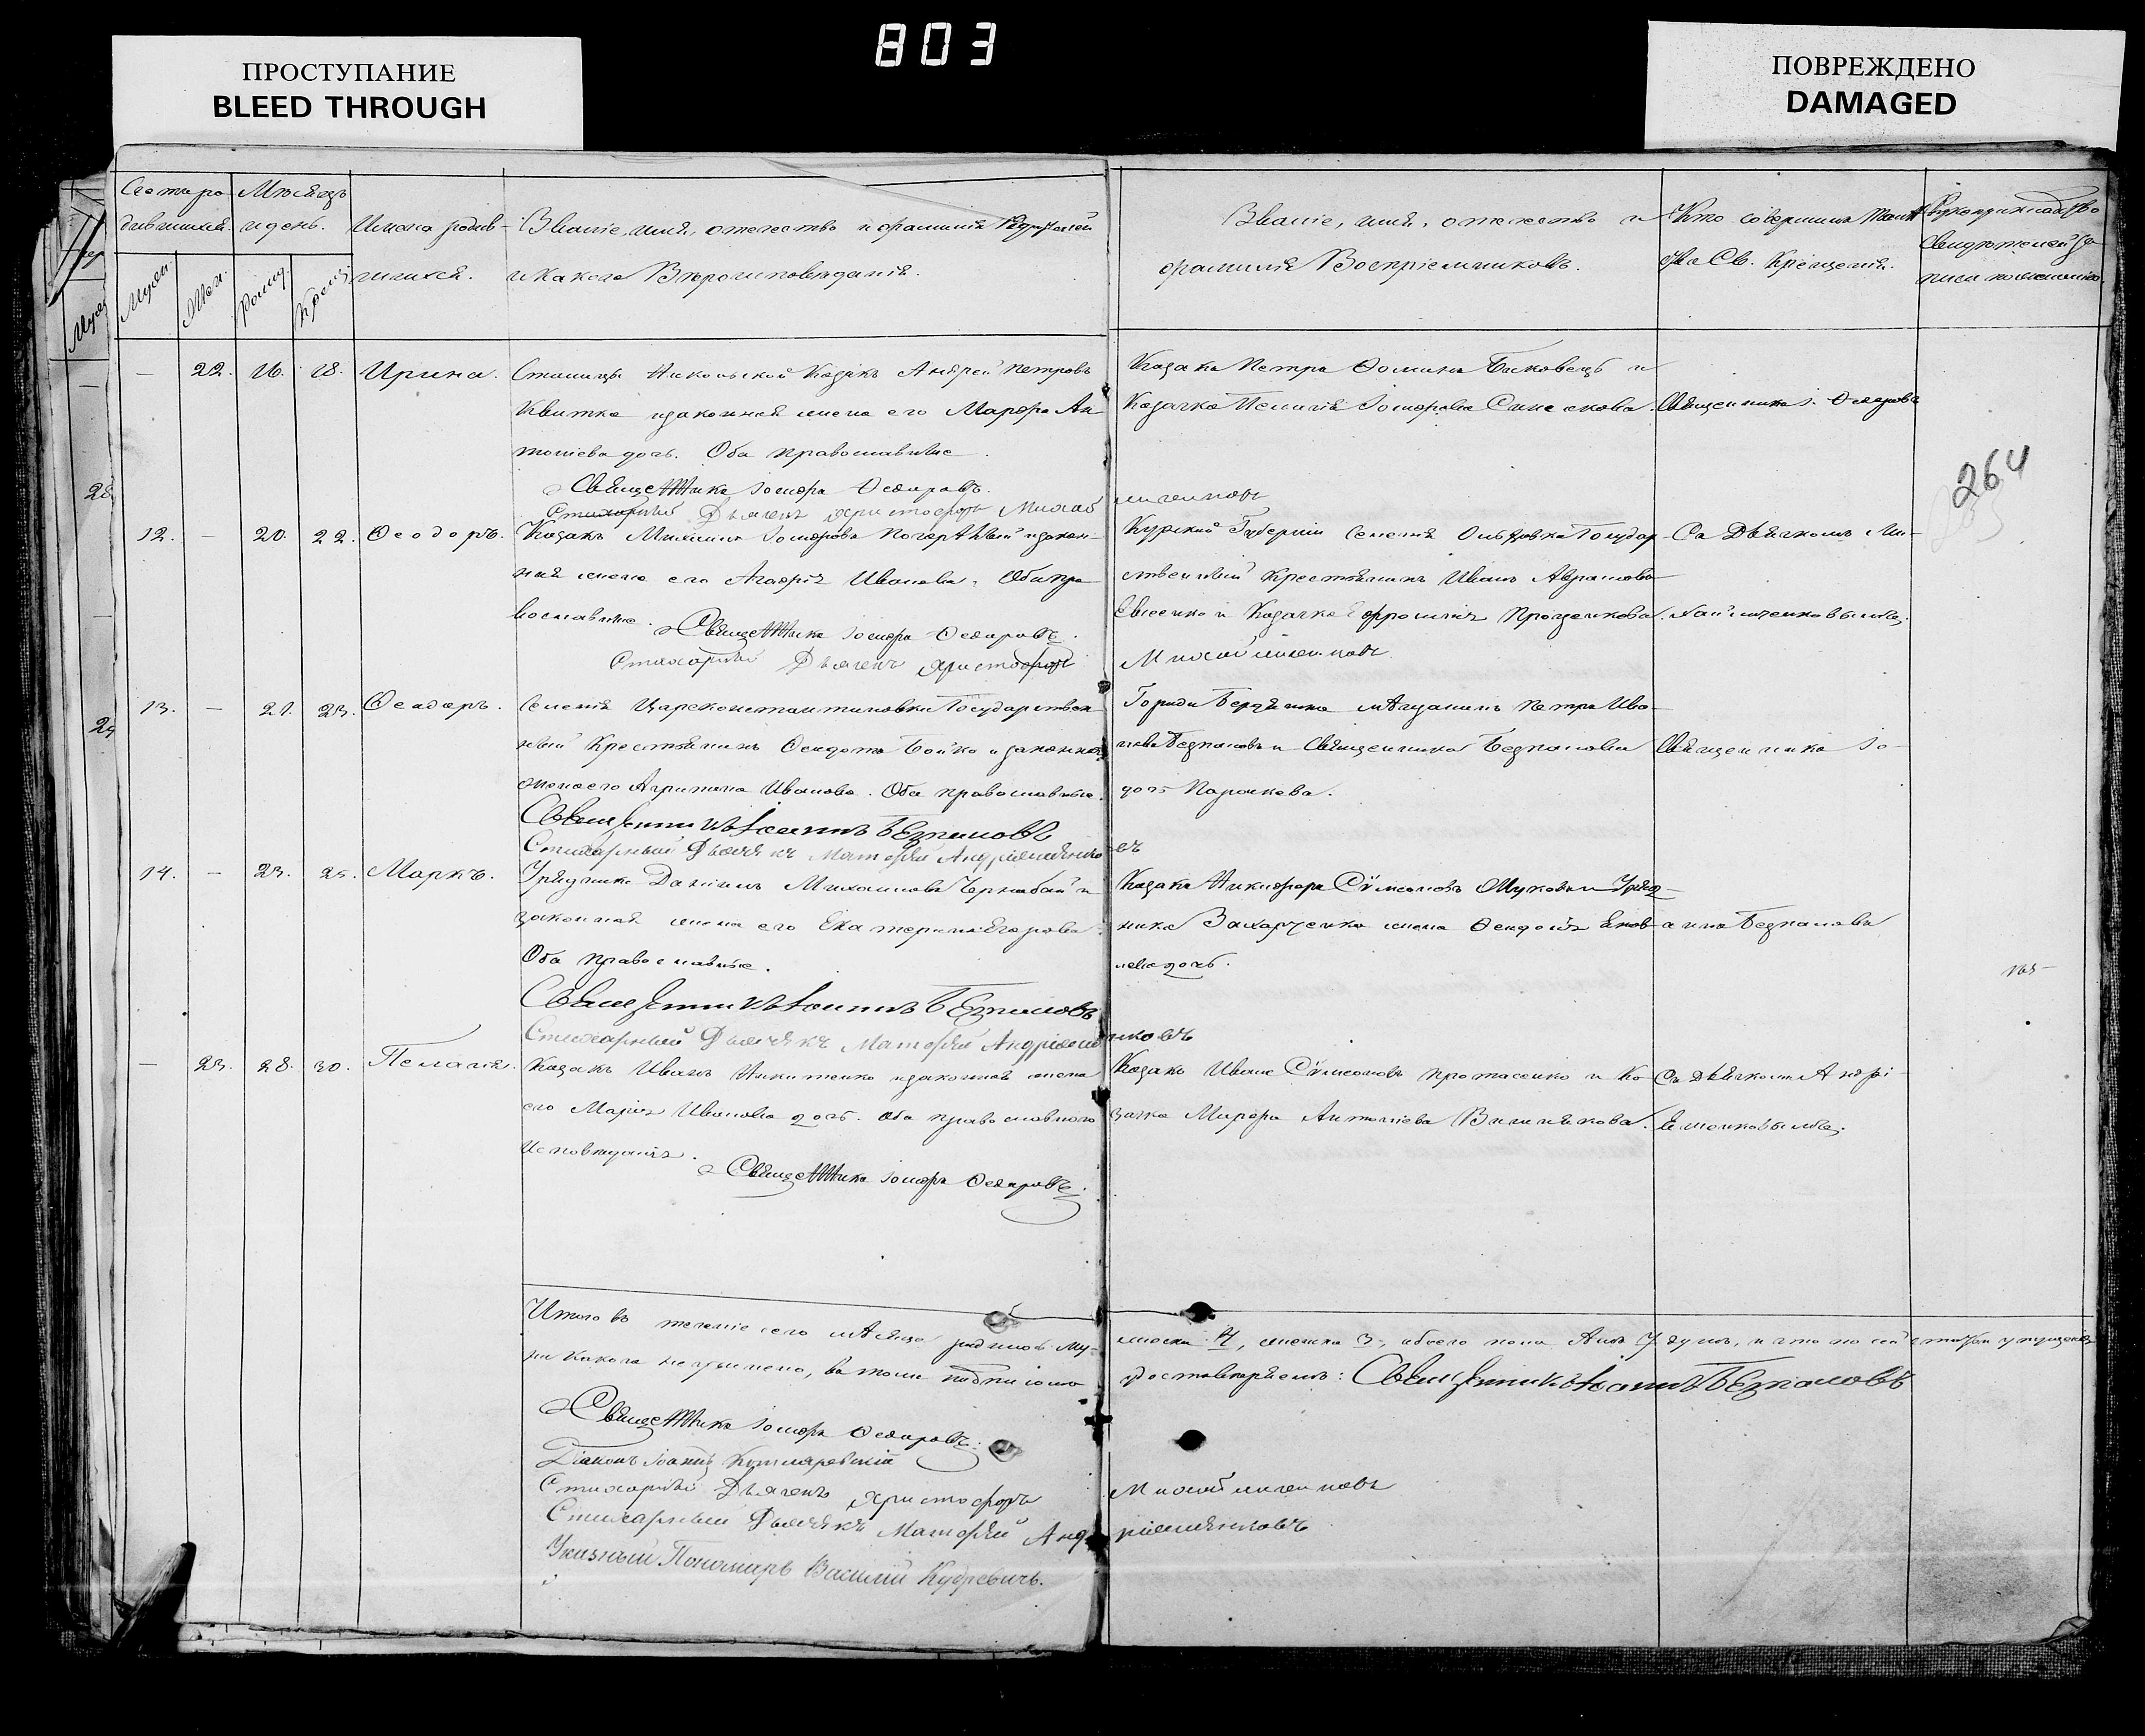 803
ПРОСТУПАНИЕ
BLEED THROUGH
ПОВРЕЖДЕНО
DAMAGED
Счетъ ро
дившихся.
Мѣсяцъ
и день.
Имена родив-
шихся.
Званіе, имя, отечество и фамилія Родителей
и какого Вѣроисповѣданія.
Званіе, имя, отечество и
фамилія Воспріемниковъ.
Кто совершилъ Таин
ство Св. Крещенія.
Рукоприкладство
Свидѣтелей за
писи по желанію.
Муж.
Жен.
Рожд.
Крещ.
— 22. 16. 18. Ирина.
Станицы Никольской Казакъ Андрей Петровъ
Квитка и законная жена его Марфа Ан
тоніева дочь. Оба православные.
Священникъ Іосифъ Ѳедоровъ.
Стихарный Дьячекъ Христофоръ Михай
личенковъ
Казакъ Петръ Ѳоминъ и
Казачка Іосифова
Священникъ І. Ѳедоровъ
264
12. — 20. 22. Ѳеодоръ.
Казакъ Іосифовъ и закон-
ная жена его Агафія Иванова. Оба пра
вославные.
Священникъ Іосифъ Ѳедоровъ.
Стихарный Дьячекъ Христофоръ
Михайличенковъ
Курской Губерніи Селенія Государ-
ственный Крестьянинъ Иванъ Аврамовъ
Евсенко и Казачка Ефросинія Проценкова.
Съ Дьячкомъ Ми-
хайличенковымъ.
13. — 21. 23. Ѳеодоръ.
Селенія Цареконстантиновки Государствен
ный Крестьянинъ Ѳеодотъ Бойко и законная
жена его Агрипина Иванова. Оба православные.
Священникъ Іоаннъ Безпаловъ
Стихарный Дьячекъ Матѳей Андріяшенко
въ
Города Бердянска мѣщанинъ Петръ Ива-
новъ Безпаловъ и Священника Безпалова
дочь
Священникъ Іо-
14. — 23. 25. Маркъ.
Урядникъ Даніилъ Михаиловъ Чернобай и
законная жена его Екатерина Егорова.
Оба православные.
Священникъ Іоаннъ Безпаловъ
Стихарный Дьячекъ Матѳей Андріяшен
ковъ
Казакъ Никифоръ Сѵмеоновъ и Уряд-
ника Захарченка жена Ѳеодосія
дочь.
аннъ Безпаловъ
— 23. 28. 30. Пелагія.
Казакъ Иванъ Никитенко и законная жена
его Марія Иванова дочь. Оба православнаго
исповѣданія.
Священникъ Іосифъ Ѳедоровъ.
Казакъ Иванъ Сѵмеоновъ Протасенко и Ка-
зачка Марфа Антоніева Вишнякова.
Съ Дьячкомъ Андрі-
яшенковымъ.
Итого въ теченіе сего мѣсяца родилось му-
жеска 4, женска 3, обоего пола 7 душъ, и что по сей статьи упущенія
ни какого не учинено, въ томъ подписомъ
удостовѣряемъ: Священникъ Іоаннъ Безпаловъ
Священникъ Іосифъ Ѳедоровъ.
Діаконъ Іоаннъ Котляревскій
Стихарный Дьячекъ Христофоръ
Михайличенковъ
Стихарный Дьячекъ Матѳей Анд
ріяшенковъ
Указный Пономарь Василій Кудревичъ.